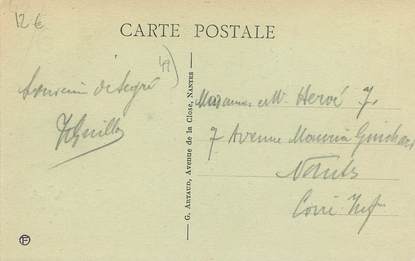 12 €
CARTE POSTALE
49
Souvenir de Segré
G. Artaud, Avenue de la Close, Nantes
et Mr Hervé J.
7 Avenue
Nantes
Loire Inf